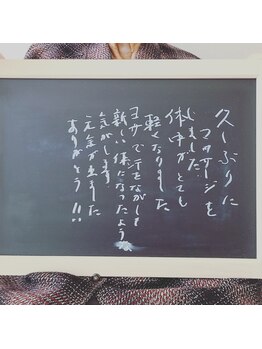 久しぶりに
マッサージを
しました
体中がとても
軽くなりました
ヨサで汗をながしも
新しい体になったよう
気がします
元気が出ました
ありがとう!!